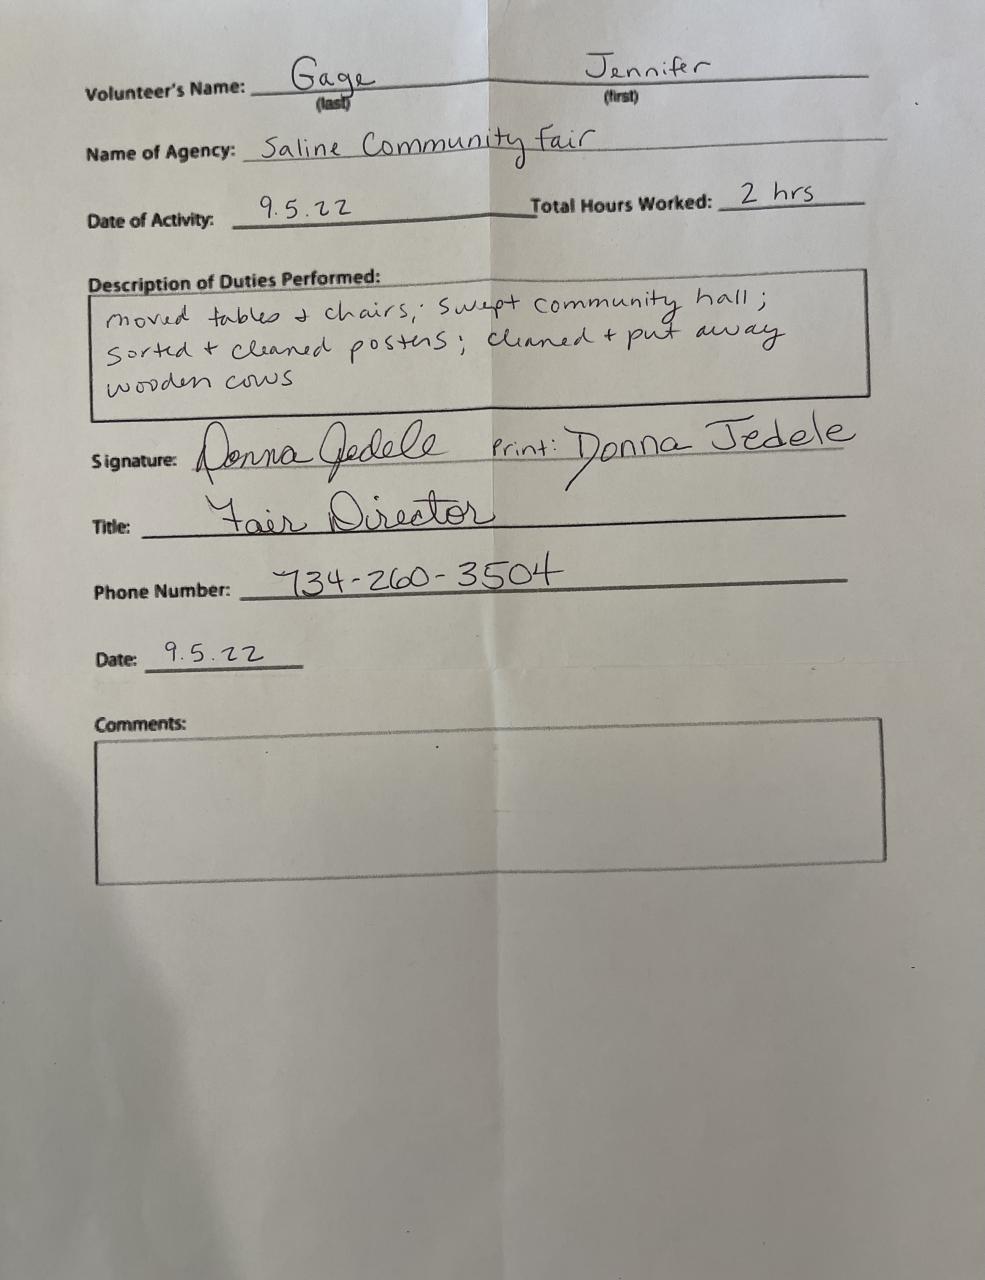 Volunteer's Name: Gage Jennifer
(last) (first)
Name of Agency: Saline Community Fair
Date of Activity: 9.5.22 Total Hours Worked: 2 hrs
Description of Duties Performed:
moved tables + chairs; swept community hall;
sorted + cleaned posters; cleaned + put away
wooden cows
Signature: Donna Jedele Print: Donna Jedele
Title: Fair Director
Phone Number: 734-260-3504
Date: 9.5.22
Comments: